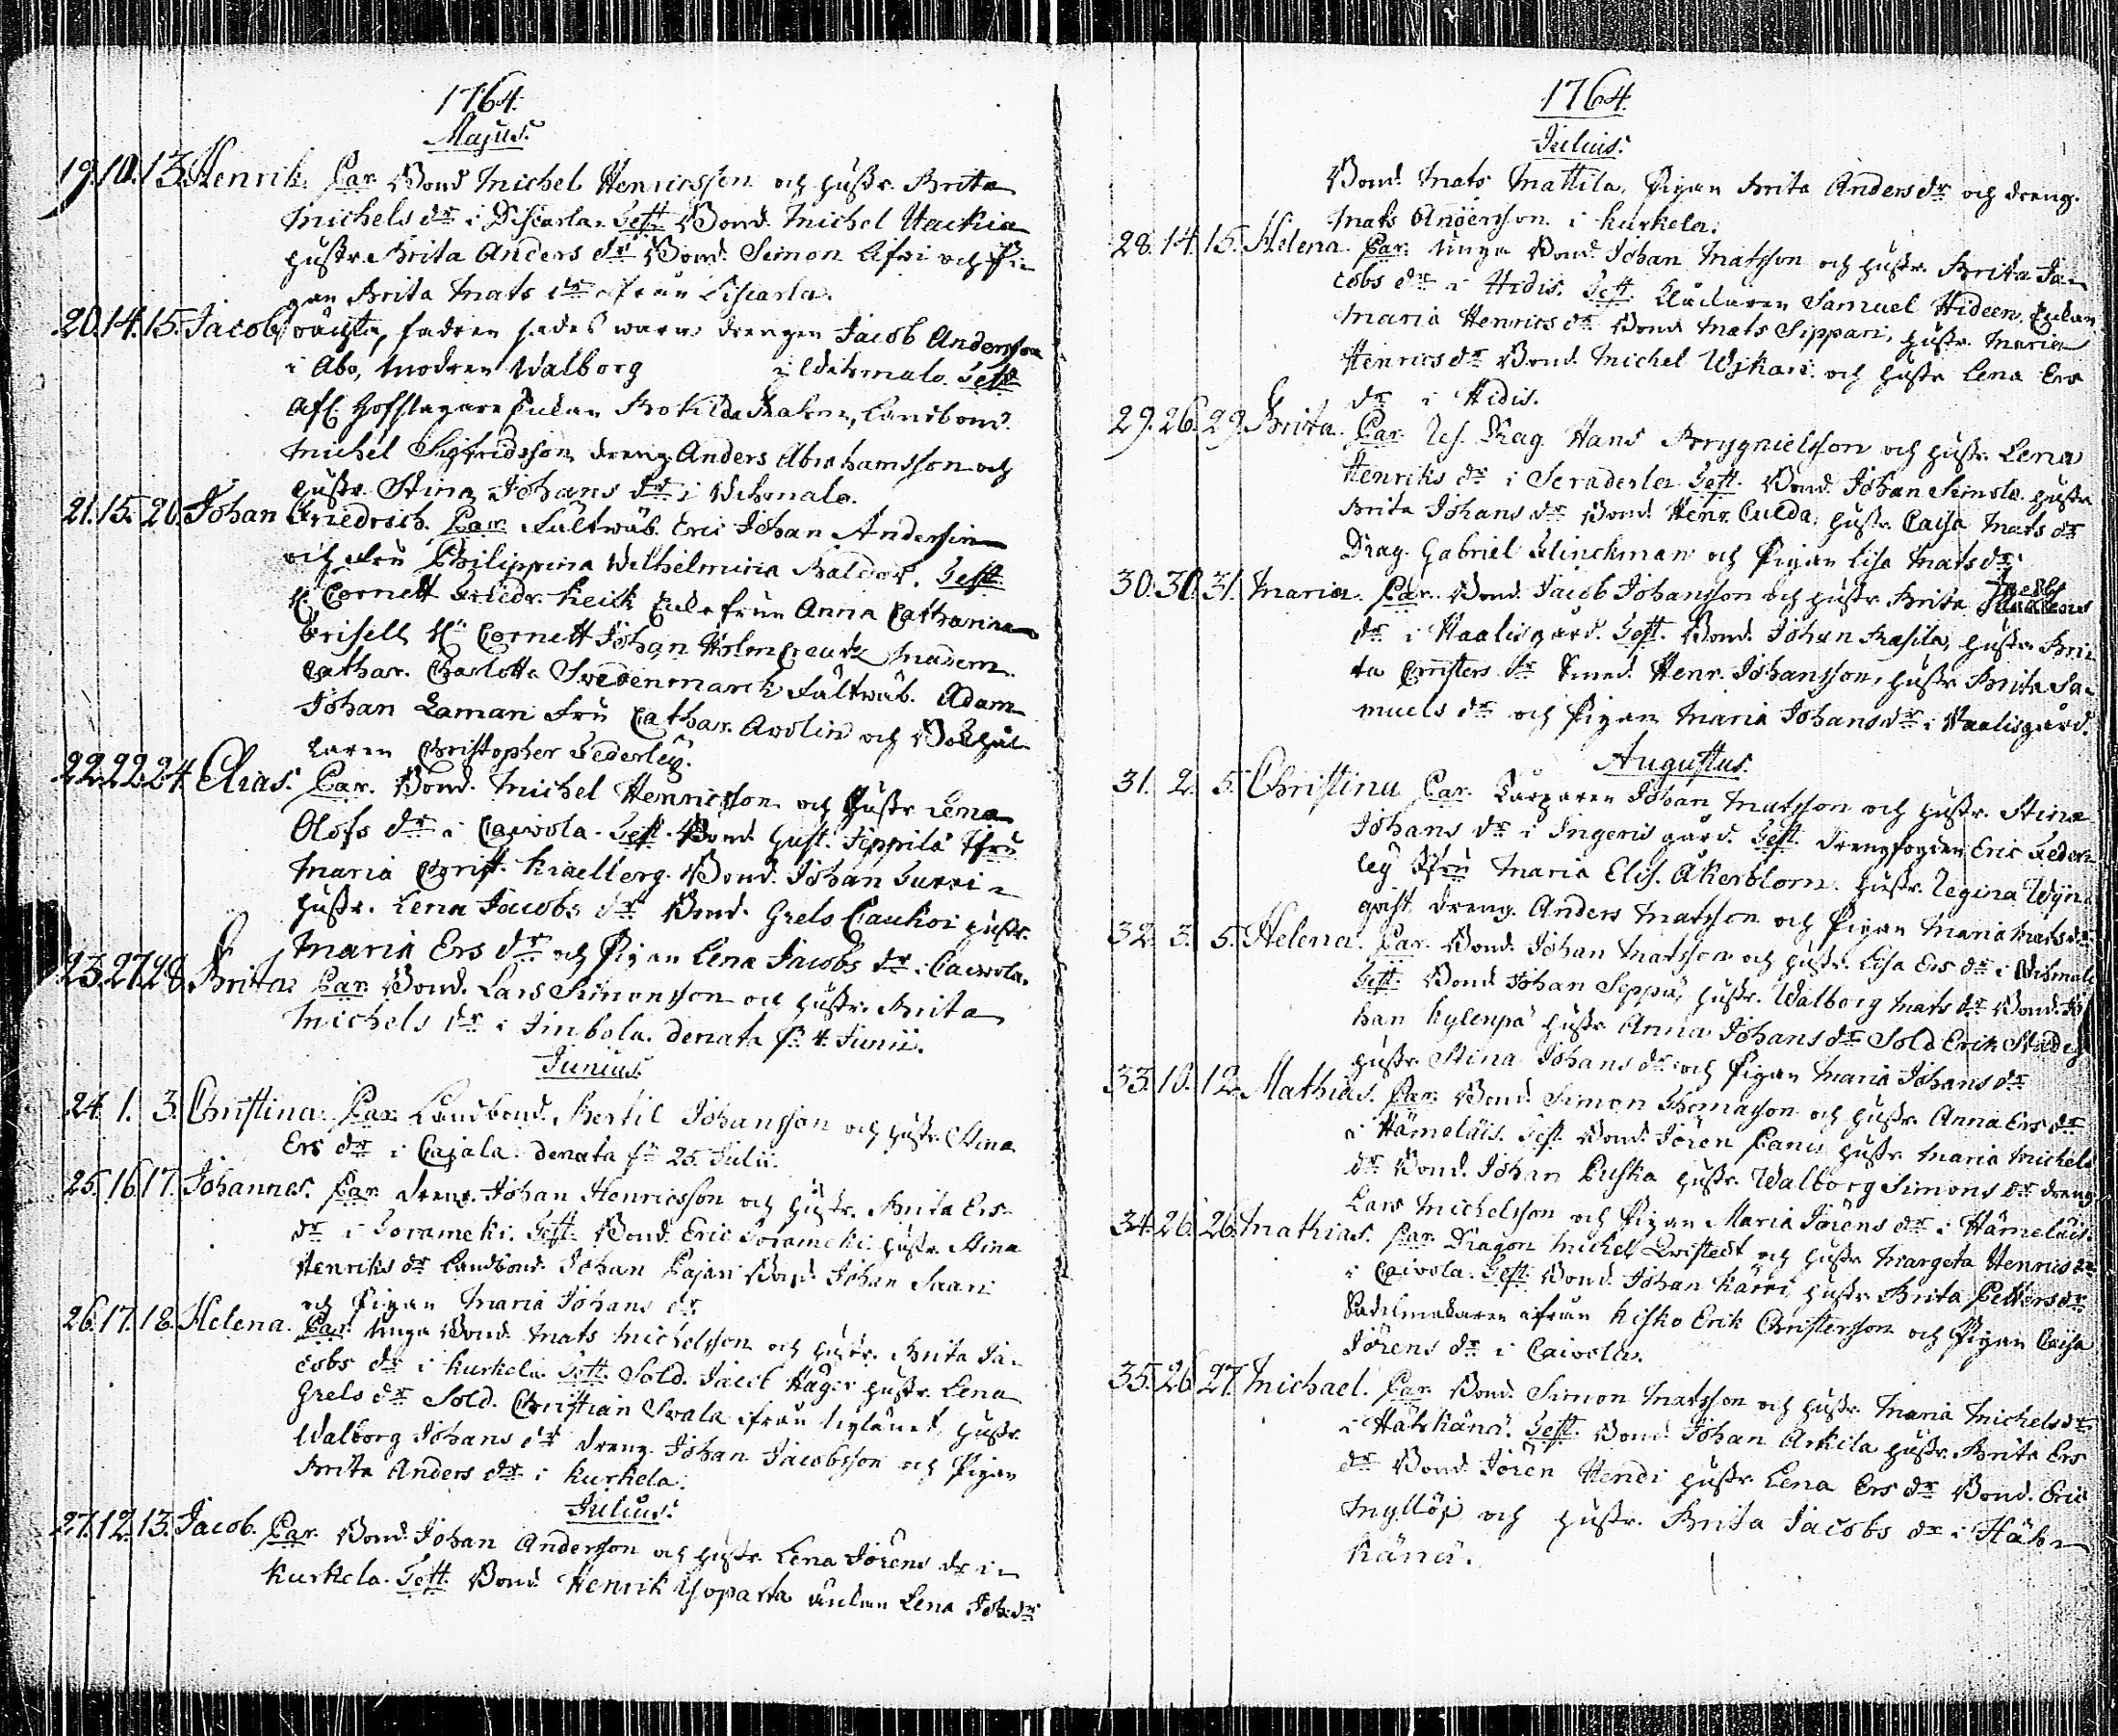 1764.
Majus.
19. 10. 13. Henrik. Par. Bond. Michel Henricsson och hustr. Brita
Michels dr i Discarla. Test. Bond. Michel Uackia
hustr. Brita Anders dr Bond. Simon Lifvi och Pi-
gan Brita Mats dr ifrån Liscarla.
20. 14. 15. Jacob oäckta, fadren sades wara drengen Jacob Andersson
i Abo, Modren Walborg i Wihmalo. Test.
Michel Sigfridsson, dreng Anders Abrahamsson och
hustr. Stina Johans dr i Wihmalo.
21. 15. 20. Johan Friedrich. Par. Fältwäb. Eric Johan Andersin
och Fru Philippina Wilhelmina Balder. Test.
H. Cornett Friedr. Reick Enkefrun Anna Catharina
Brisell Hr Cornett Johan Holm Creutz Madem
Cathar. Charlotta Svedenmarck Fältwäb. Adam
Johan Laman Fru Cathar. Avolin och Bokhål-
laren Christopher Federley.
22. 22. 24. Elias. Par. Bond. Michel Henricsson och hustr. Lena
Olofs dr i Caivola. Test. Bond. Gust. Seppilä Jfru
Maria Christ. Kiaellerg. Bond. Johan Surri
hustr. Lena Jacobs dr Bond. Grels Caukoi hustr.
Maria Ers dr och Pigan Lena Jacobs dr i Caivola.
23. 27. 28. Brita. Par. Bond. Lars Simonsson och hustr. Brita
Michels dr i Jinbola. denata d. 4. Junii.
Junius.
24. 1. 3. Christina. Par. Landbond. Bertil Johansson och hustr. Stina
Ers dr i Cajala. denata d. 25. Julii.
25. 16. 17. Johannes. Par. dreng. Johan Henricsson och hustr. Brita Ers
dr i Jorameki. Test. Bond. Eric Jorameki hustr. Stina
Henriks dr Landbond. Johan Pajari Bond. Johan Saari
och Pigan Maria Johans dr
26. 17. 18. Helena. Par. Unga Bond. Mats Michelsson och hustr. Brita Ja-
cobs dr i Kurkela. Test. Sold. Jacob Häger hustr. Lena
Grels dr Sold. Christian Svala ifrån Uglänet, hustr.
Walborg Johans dr dreng. Johan Jacobsson och Pigan
Brita Anders dr i Kurkela.
Julius.
27. 12. 13. Jacob. Par. Bond. Johan Andersson och hustr. Lena Jörens dr i
Kurkela. Test. Bond. Henrik Yoparta enkan Lena Joh. dr
1764.
Julius.
Bond. Mats Mattila, Pigan Brita Anders dr och dreng.
Mats Andersson i Kurkela.
28. 14. 15. Helena. Par. Unga Bond. Johan Matsson och hustr. Brita Ja-
cobs dr i Hidis. Test. Klåckaren Samuel Hideen, Enkan
Maria Henrics dr Bond Mats Sippari, hustr. Maria
Henrics dr Bond. Michel Wikari och hustr Lena Ers
dr i Hidis.
29. 26. 29. Brita. Par. Res. Drag. Hans Brygnielsson och hustr. Lena
Henriks dr i Seraderla. Test. Bond. Johan Simola hustr.
Brita Johans dr Bond. Henr. Culda, hustr. Caisa Mats dr
Drag. Gabriel Klinckman och Pigan Lisa Mats dr.
30. 30. 31. Maria. Par. Bond. Jacob Johansson och hustr. Brita
dr i Waalisgård. Test. Bond. Johan Rasila, hustr. Bri-
ta Christers dr Smed. Henr. Johansson, hustr. Brita Sa-
muels dr och Pigan Maria Johans dr i Waalisgård.
Augustus.
31. 2. 5. Christina. Par. Johan Matsson och hustr. Stina
Johans dr i Ingeris gård. Test. Drengfogden Eric Feder-
ley Jfru Maria Elis. Åkerblom. hustr. Regina Wijn-
qvist dreng. Anders Matsson och Pigan Maria Mats dr.
32. 3. 5. Helena. Par. Bond. Johan Matsson och hustr. Lisa Ers dr i Wihmalo
Test. Bond Johan Seppä, hustr. Walborg Mats dr Bond. Jo
han Kylenpä hustr. Anna Johans dr Sold Erik Stadig
hustr. Stina Johans dr och Pigan Maria Johans dr
33. 10. 12. Mathias. Par. Bond. Simon Thomasson och hustr. Anna Ers dr
i Hämeläis. Test. Bond. Jören Panu hustr. Maria Michels
dr Bond. Johan Puska hustr. Walborg Simons dr dreng
Lars Michelsson och Pigan Maria Jörens dr i Hämeläis.
34. 26. 26. Mathias. Par. Dragon Michel Qvistedt och hustr Margeta Henrics dr
i Caivola. Test. Bond. Johan Karri, hustr. Brita Petters dr
Sadelmakaren ifrån Kisko Erik Christersson och Pigan Caisa
Jörens dr i Caivola.
35. 26. 27. Michael. Par. Bond. Simon Matsson och hustr. Maria Michels dr
i Hähkänä. Test. Bond Johan Arkila hustr. Brita Ers
dr Bond. Jören Hendi hustr. Lena Ers dr Bond. Eric
Myllöj och hustr. Brita Jacobs dr i Häh-
känä.